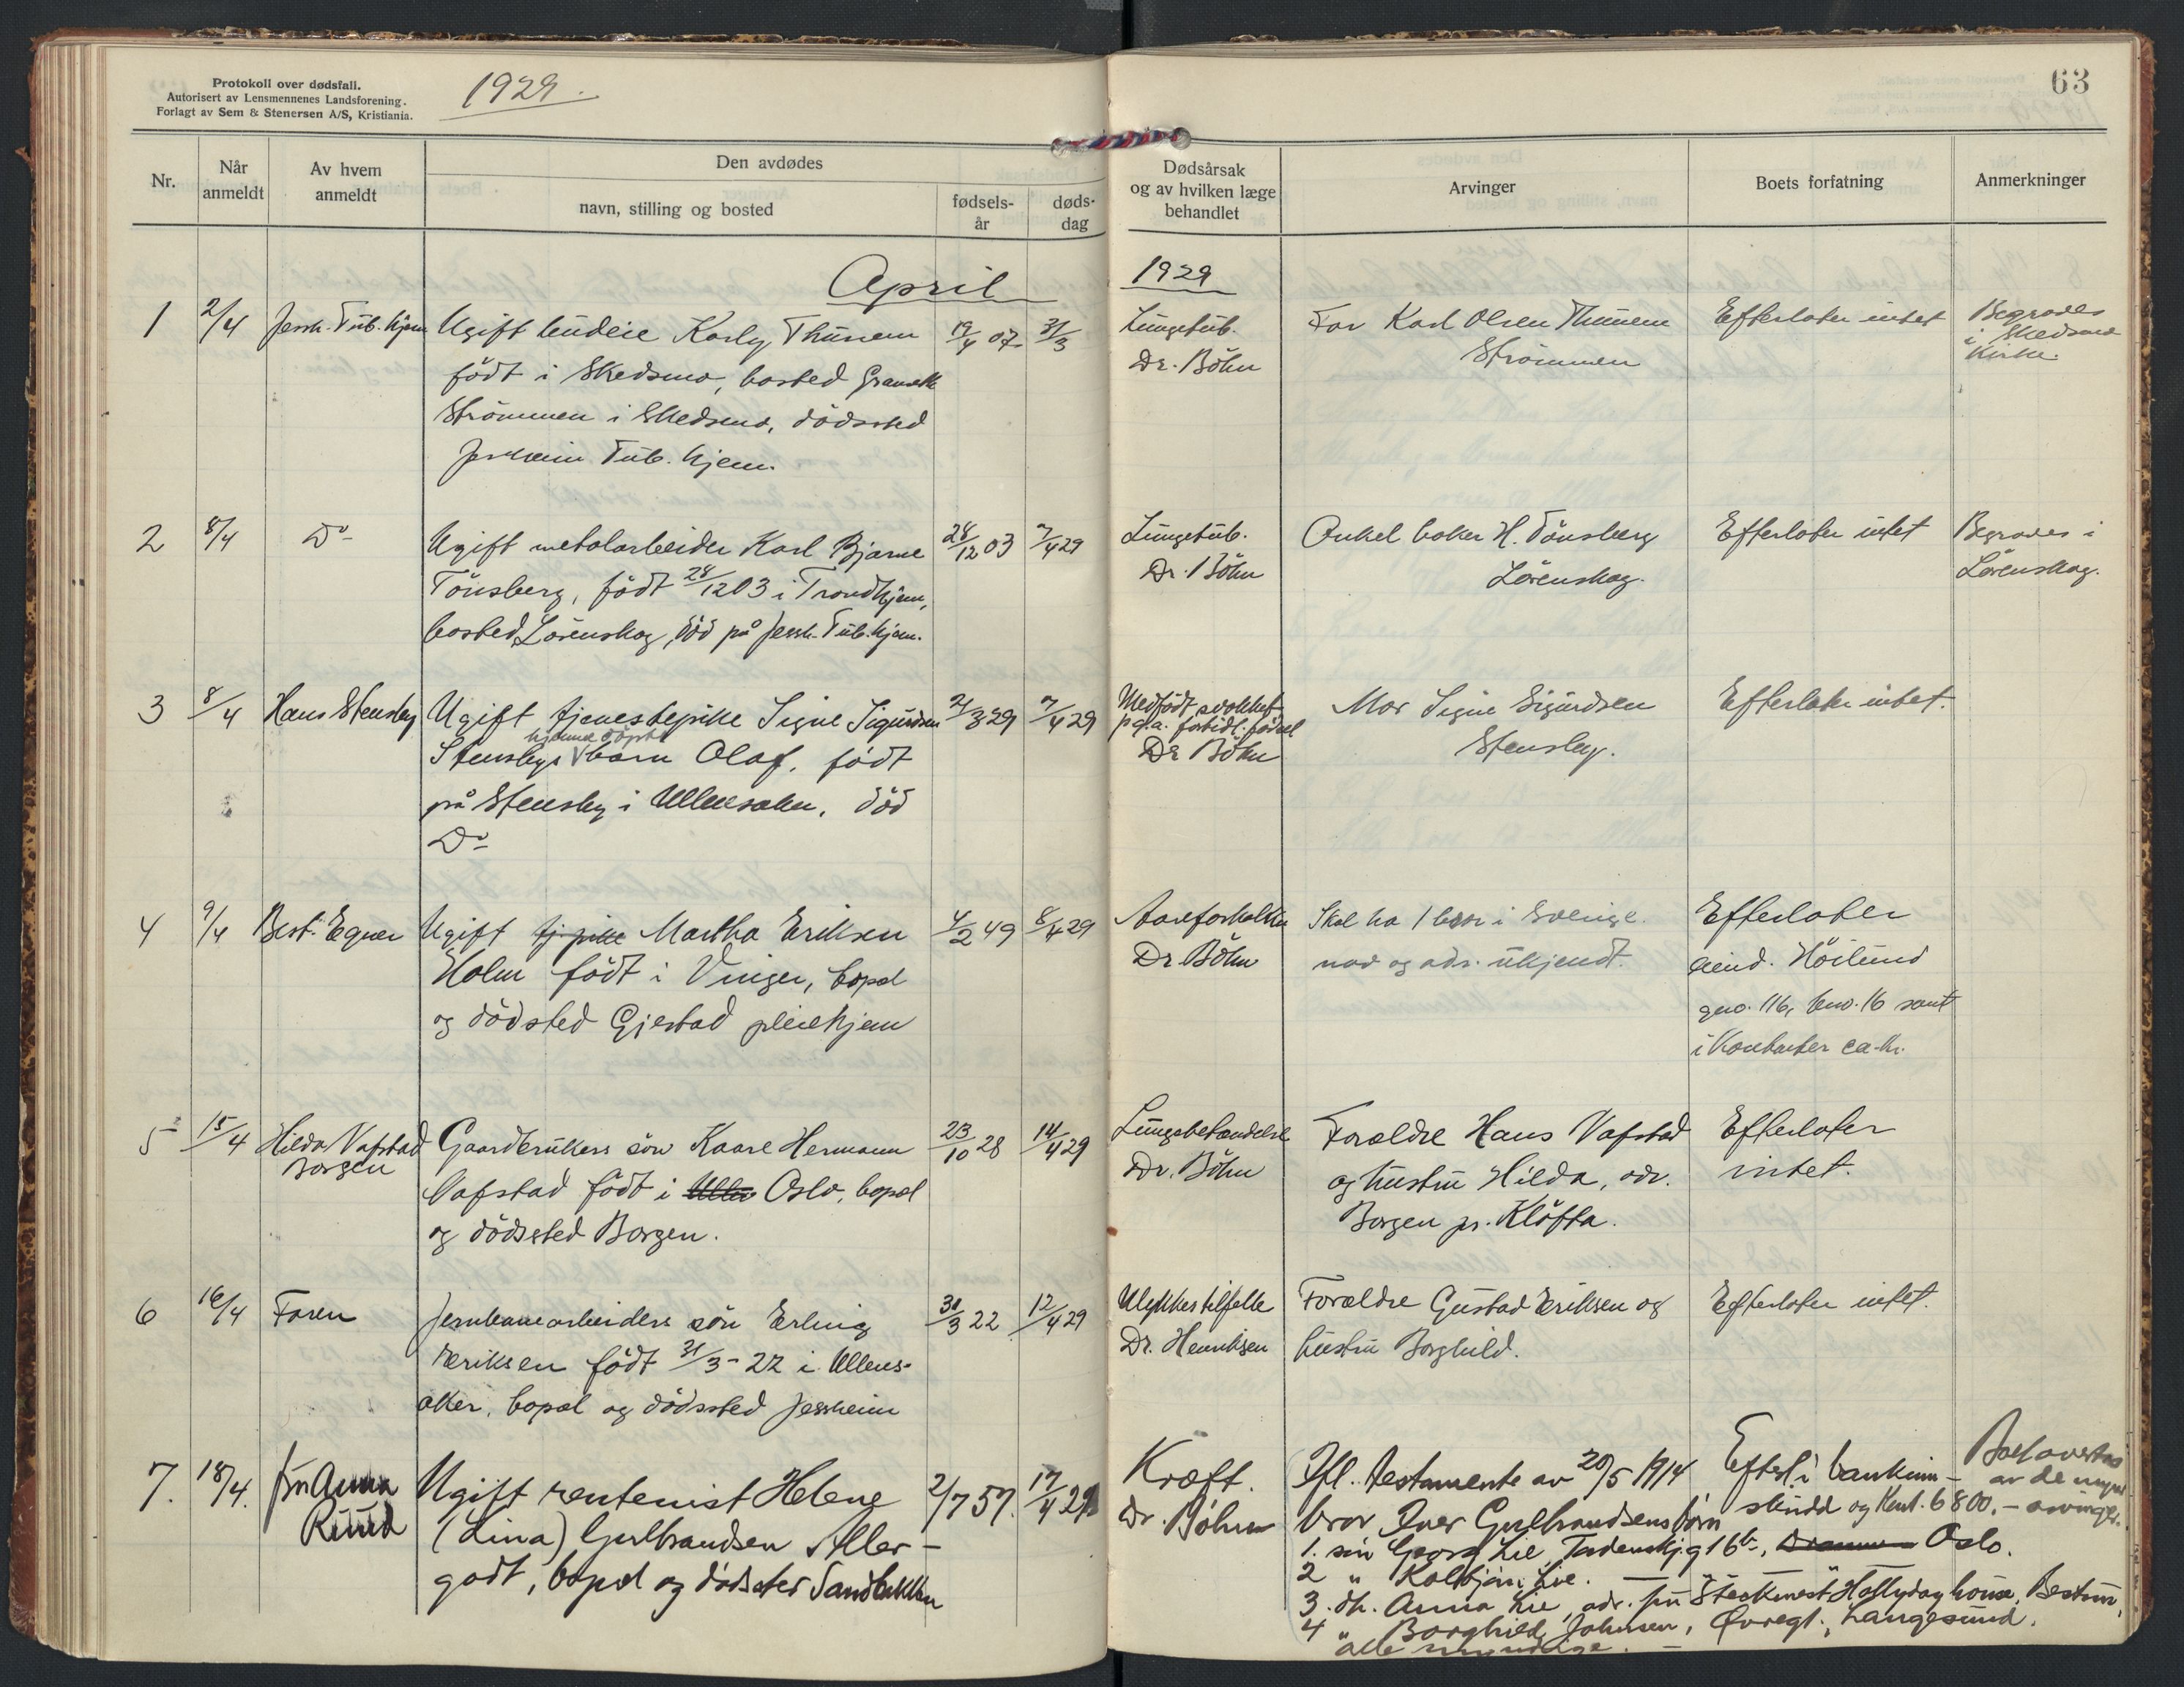 Protokoll over dødsfall.
Autorisert av Lensmennenes Landsforening.
Forlagt av Sem & Stenersen A/S, Kristiania.
1929.
63
Nr.
Når anmeldt
Av hvem anmeldt
Den avdødes
navn, stilling og bosted
fødsels-år
døds-dag
Dødsårsak og av hvilken læge behandlet
Arvinger
Boets forfatning
Anmerkninger
April
1929
1 2/4 Jessh. Tub. hjem Ugift budeie Karly Thunem 19/4 07. 31/3
født i Skedsmo, bosted
Strömmen i Skedsmo, dödssted
Jessheim Tub. hjem.
Lungetub.
Dr. Böhn
Far Karl Olsen Thunem
Strömmen
Efterlater intet
Begraves
i Skedsmo
Kirke.
2 8/4 Do Ugift metalarbeider Karl Bjarne 28/12 03 7/4 29
Tönsberg, födt 28/12 03 i Trondhjem,
bosted Lörenskog, död på Jessh. Tub. hjem.
Lungetub.
Dr. Böhn
Onkel baker H. Tönsberg
Lörenskog.
Efterlater intet
Begraves i
Lörenskog.
3 8/4 Hans Stensby Ugift tjenestepike Signe Sigurdsen 21/3 29 7/4 29
hjemmedöpte
Stensbys barn Olaf, födt
på Stensby i Ullensaker, död
Do
Medfödt svakhet
p.g.a. fortidl. födsel
Dr Böhn
Mor Signe Sigurdsen
Stensby.
Efterlater intet.
4 9/4 Best. Egner Ugift tj. pike Martha Eriksen 4/2 49 8/4 29
Holm födt i Vinger, bopæl
og dödsted Gjestad pleiehjem
Aareforkalkn
Dr. Böhn
Skal ha 1 bror i Sverige.
navn og adr. ukjendt.
Efterlater
eiend. Höilund
gno. 116, bno. 16 samt
i Kontanter ca. kr.
5 15/4 Hilda Vafstad Gaardbrukers sön Kaare Hermann 23/10 28 14/4 29
Borgen
Vafstad födt i Ullen Oslo, bopæl
og dödssted Borgen.
Lungebetændelse
Dr. Böhn
Forældre Hans Vafstad
og hustru Hilda, adr.
Borgen pr. Klöfta.
Efterlater
intet.
6 16/4 Faren Jernbanearbeiders sön Erling 31/3 22 12/4 29
Eriksen födt 31/3 - 22 i Ullens-
aker, bopæl og dödssted Jessheim
Ulykkestilfelle
Dr. Henriksen
Forældre Gustad Eriksen og
hustru Borghild.
Efterlater intet.
7. 18/4. frk Anna Ugift rentenist Helene 2/7 57. 17/4 29
Ruud
(Lina) Gulbrandsen Aller-
godt, bopæl og dödssted Sandbakken
Kræft.
Dr. Böhn
Ifl. testamente av 20/5 1914
bror Iver Gulbrandsens börn
Efterl. i bankinn-
skudd og kont. 6800.-
Boet overtas
av de myndi
arvinger.
1. sön Georg Lie, Tordenskj.g 16b, Oslo.
2 " Kolbjörn Lie.
3. dtr. Anna Lie, adr. fru Hollyday house, Bestum,
4 " Borghild Johnsen, Øvregt., Langesund.
alle myndige.